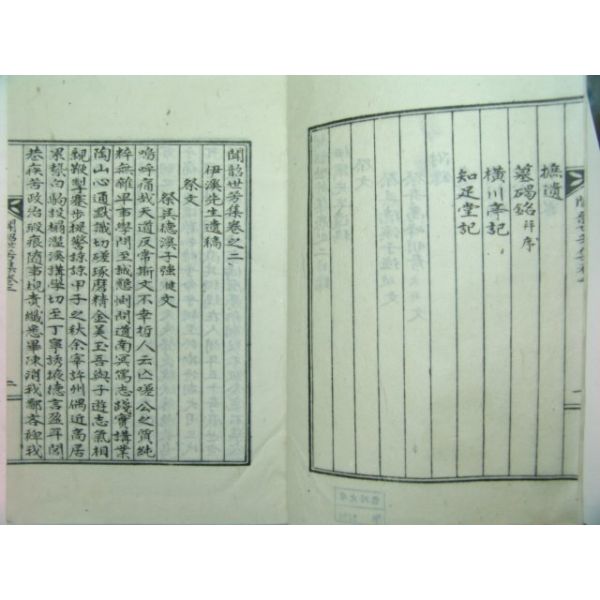 摭遺
墓碣銘 并序
橫川亭記
知足堂記
聞韶世芳集卷之二
伊溪先生遺稿
祭文
祭吳德溪子強健文
嗚呼痛哉天道反常斯文不幸哲人云亡嗟公之質純
粹無雜早事學問至誠懇惻問道南冥篤志踐實講業
陶山心通默識切磋琢磨精金美玉吾與子遊志氣相
親鞭駑蹇步提警諄諄甲子之秋余宰許州偶近高居
累榮白駒投榻灆溪講學切至丁寧誘掖德言盈耳問
巷疾苦政治瑕痕隨事規責纖悉畢陳消我鄙吝碑我